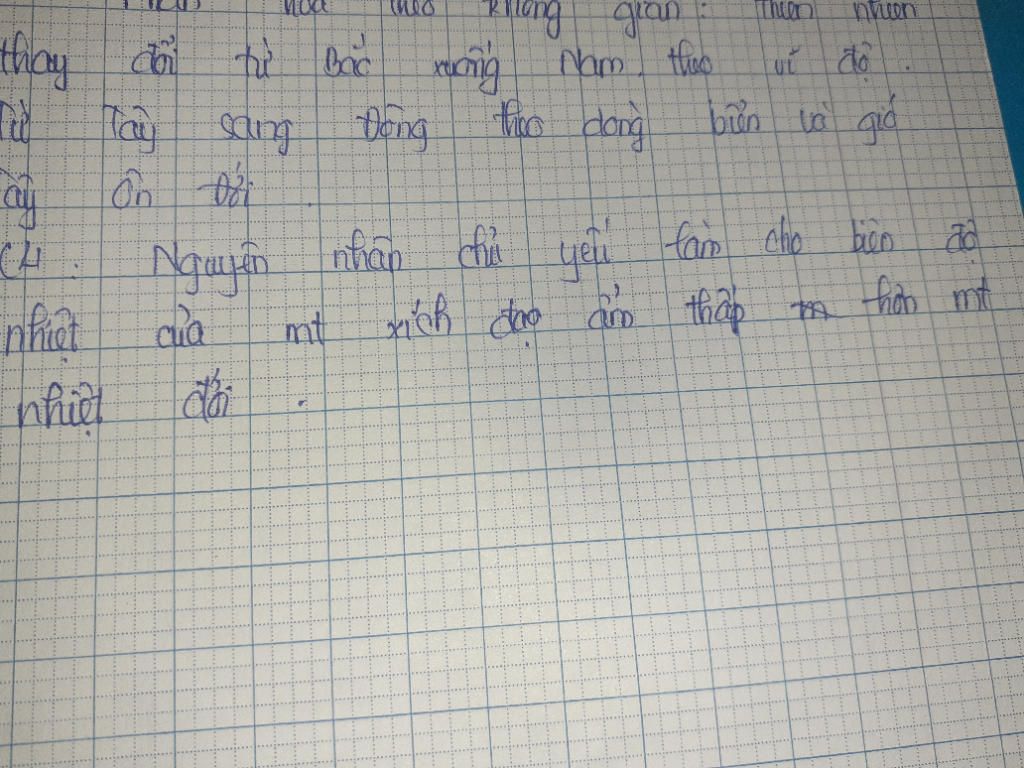 hoá theo không gian: thiên nhiên
thay đổi từ Bắc xuống Nam theo vĩ độ.
Từ Tây sang Đông theo dòng biển và gió
ây ôn đới.
CH: Nguyên nhân chủ yếu làm cho biên độ
nhiệt của mt xích đạo ẩm thấp hơn mt
nhiệt đới.